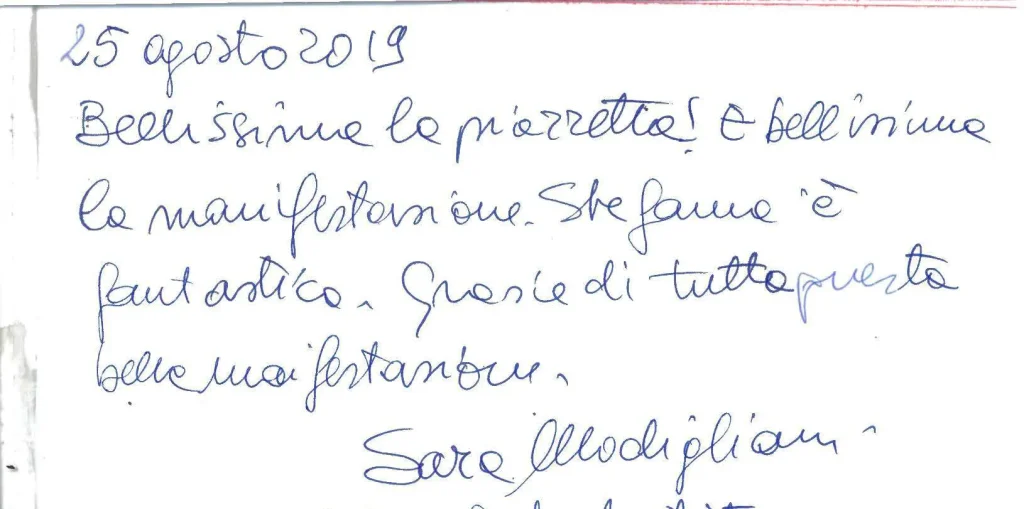 25 agosto 2019
Bellissima la piazzetta! E bellissima
la manifestazione. Stefania è
fantastica. Grazie di tutta questa
bella maifestazione.
Sara Modigliani